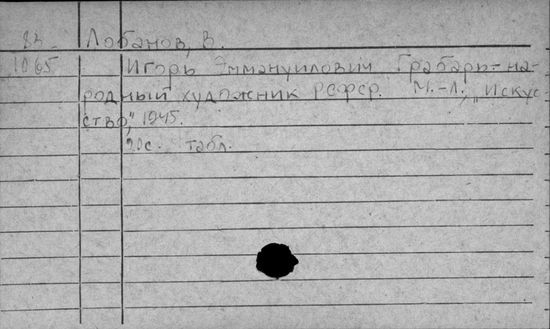 Лобанов, В.
1065 Игорь Эммануилович Грабарь - на-
родный художник РСФСР. М.-Л., "Искус-
ство", 1945.
20с. табл.